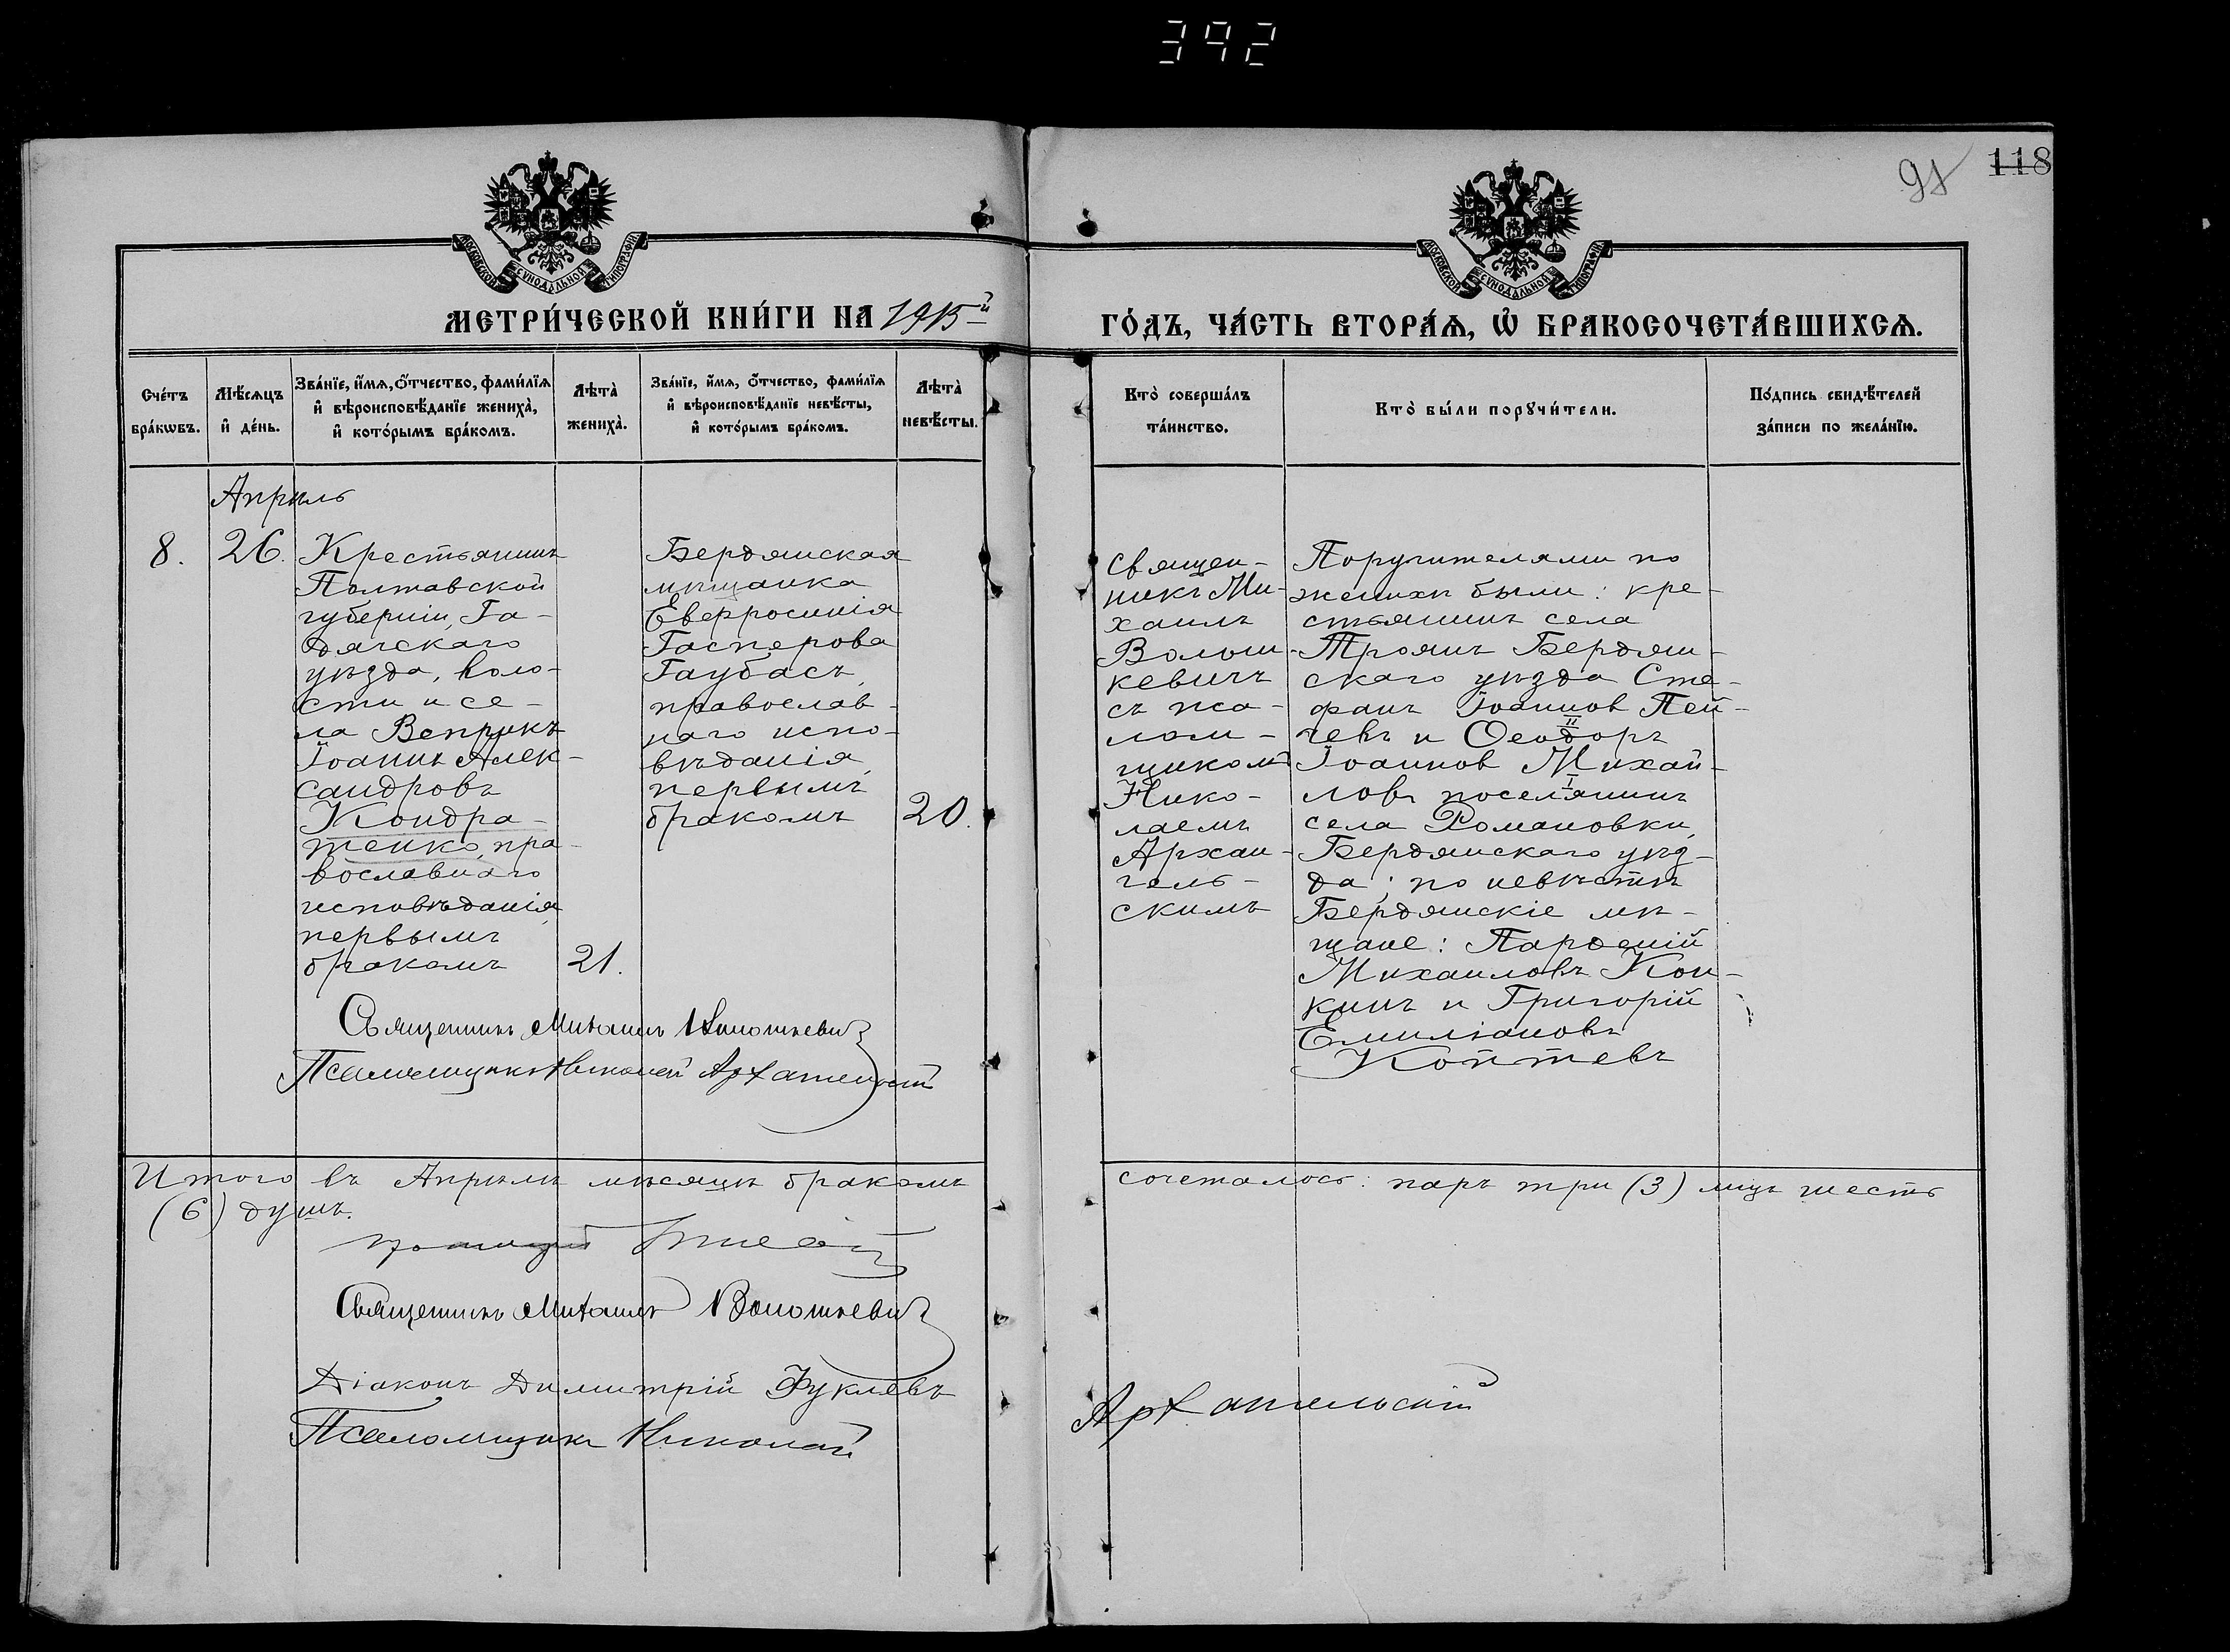 392
118
МОСКОВСКОЙ СѴНОДАЛЬНОЙ ТИПОГРАФІИ
МОСКОВСКОЙ СѴНОДАЛЬНОЙ ТИПОГРАФІИ
МЕТРИ́ЧЕСКОЙ КНИ́ГИ НА 1915й
ГО́ДЪ, ЧА́СТЬ ВТОРА́Ѧ, Ѡ҆ БРАКОСОЧЕТА́ВШИХСѦ.
Сче́тъ
бра́кѡвъ.
Мѣ́сѧцъ
и҆ де́нь.
Зва́нїе, и҆́мѧ, ѻ҆́тчество, фами́лїѧ
и҆ вѣроисповѣ́данїе жениха̀,
и҆ кото́рымъ бра́комъ.
Лѣта̀
жениха̀.
Зва́нїе, и҆́мѧ, ѻ҆́тчество, фами́лїѧ
и҆ вѣроисповѣ́данїе невѣ́сты,
и҆ кото́рымъ бра́комъ.
Лѣта̀
невѣ́сты.
Кто̀ соверша́лъ
та́инство.
Кто̀ бы́ли порꙋчи́тели.
По́дпись свидѣ́телей
за́писи по жела́нїю.
Апрѣль
8.
26.
Крестьянинъ
Полтавской
губерніи, Га-
дячскаго
уѣзда, воло-
сти и се-
ла Веприкъ
Іоаннъ Алек-
сандровъ
Кондра-
тенко, пра-
вославнаго
исповѣданія,
первымъ
бракомъ
21.
Бердянская
мѣщанка
Евфросинія
Гасперова
Гаубасъ,
православ-
наго испо-
вѣданія,
первымъ
бракомъ
20.
Священ-
никъ Ми-
хаилъ
Волош-
кевичъ
съ пса-
лом-
щикомъ
Нико-
лаемъ
Архан-
гель-
скимъ
Поручителями по
женихѣ были: кре-
стьянинъ села
Троянъ Бердян-
скаго уѣзда Сте-
фанъ Іоанновъ Пей-
чевъ и Ѳеодоръ
II
Іоаннов Михай-
ловъ поселянинъ
I
села Романовки,
Бердянскаго уѣз-
да; по невѣстѣ
Бердянскіе мѣ-
щане: Парѳеній
Михаиловъ Кон-
кинъ и Григорій
Емиліановъ
Коптевъ
Священникъ Михаилъ Волошкевичъ
Псаломщикъ Николай Архангельскій
Итого въ Апрѣлѣ мѣсяцѣ бракомъ
сочеталось: паръ три (3) лицъ шесть
(6) душъ.
Священникъ Михаилъ Волошкевичъ
Діаконъ Димитрій Фуклевъ
Псаломщикъ Николай
Архангельскій